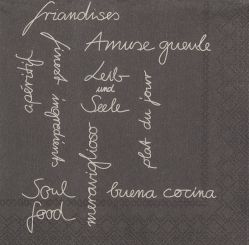 friandises
Amuse gueule
apéritif
finest ingredients
Leib
und
Seele
plat du jour
meraviglioso
Soul
food
buena cocina